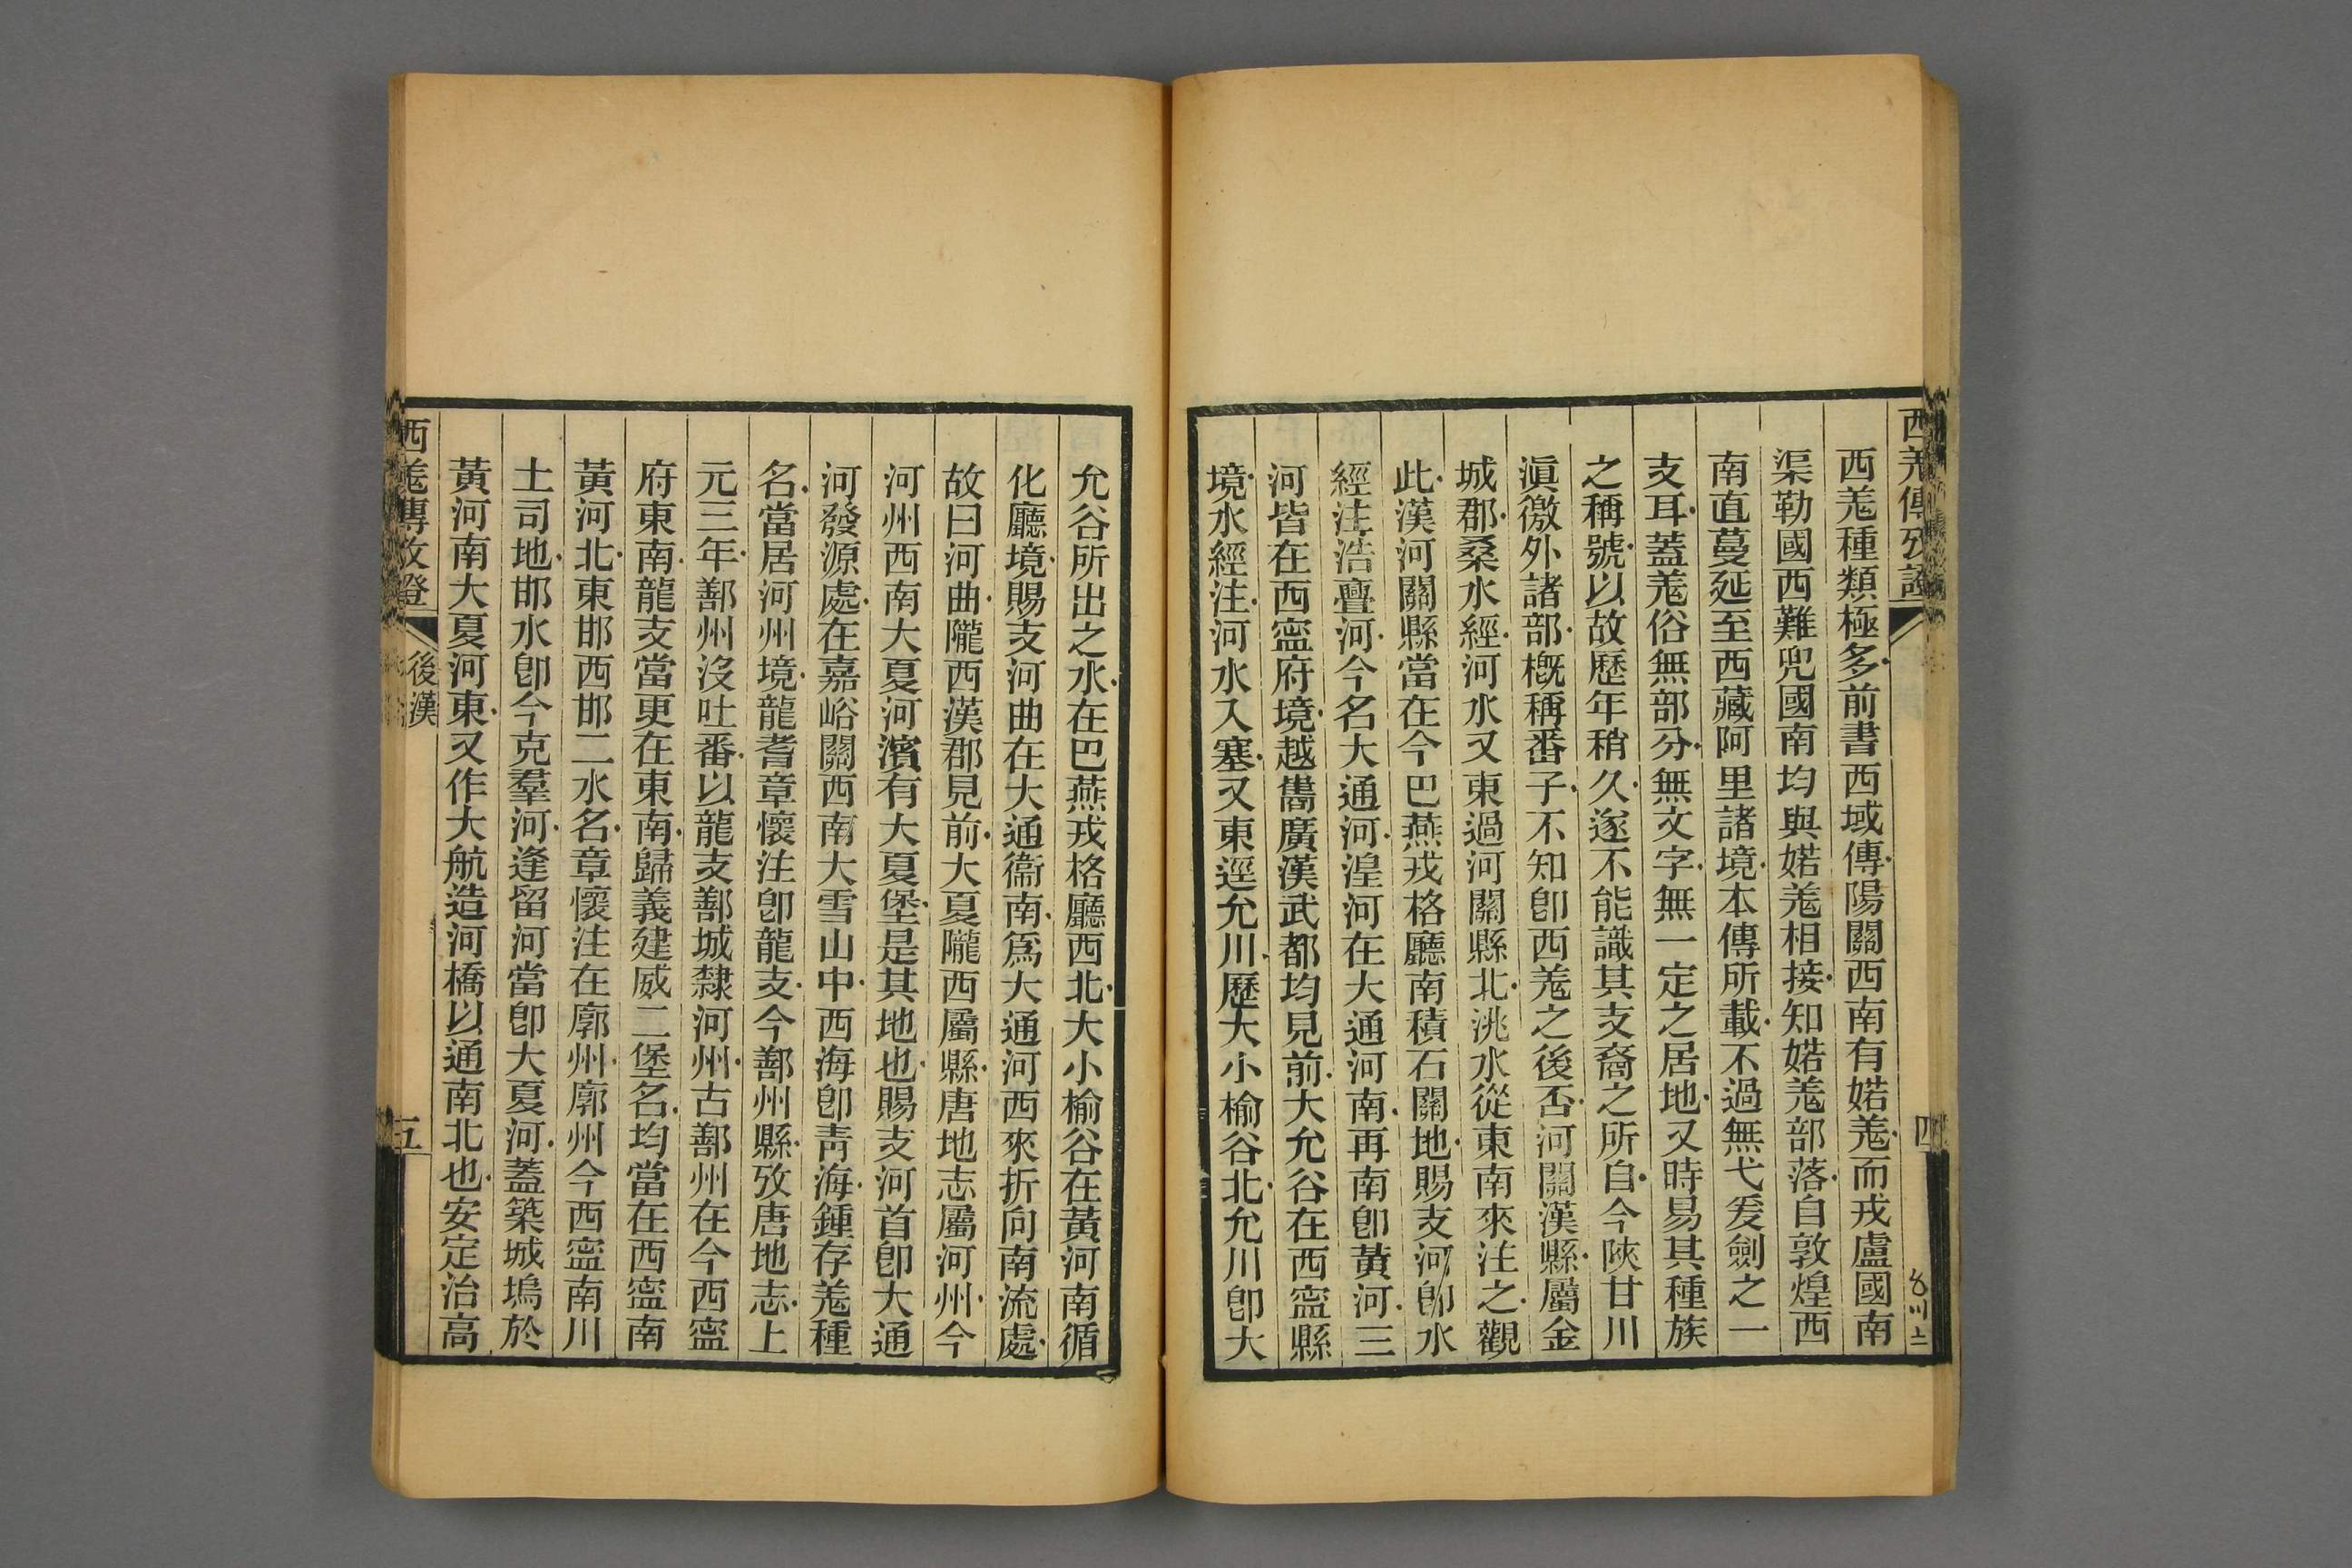 西羗傳攷證
四
西羗種類極多前書西域傳陽關西南有婼羗而戎盧國南
渠勒國西難兜國南均與婼羗相接知婼羗部落自敦煌西
南直蔓延至西藏阿里諸境本傳所載不過無弋爰劍之一
支耳蓋羗俗無部分無文字無一定之居地又時易其種族
之稱號以故歷年稍久遂不能識其支裔之所自今陝甘川
滇徼外諸部槪稱番子不知卽西羗之後否河關漢縣屬金
城郡桑水經河水又東過河關縣北洮水從東南來注之觀
此漢河關縣當在今巴燕戎格廳南積石關地賜支河卽水
經注浩亹河今名大通河湟河在大通河南再南卽黃河三
河皆在西寍府境越嶲廣漢武都均見前大允谷在西寍縣
境水經注河水入塞又東逕允川歷大小榆谷北允川卽大
允谷所出之水在巴燕戎格廳西北大小榆谷在黃河南循
化廳境賜支河曲在大通衞南爲大通河西來折向南流處
故曰河曲隴西漢郡見前大夏隴西屬縣唐地志屬河州今
河州西南大夏河濱有大夏堡是其地也賜支河首卽大通
河發源處在嘉峪關西南大雪山中西海卽靑海鍾存羗種
名當居河州境龍耆章懷注卽龍支今鄯州縣攷唐地志上
元三年鄯州沒吐番以龍支鄯城隸河州古鄯州在今西寍
府東南龍支當更在東南歸義建威二堡名均當在西寍南
黃河北東邯西邯二水名章懷注在廓州廓州今西寍南川
土司地邯水卽今克羣河逢留河當卽大夏河蓋築城塢於
黃河南大夏河東又作大航造河橋以通南北也安定治高
西羗傳攷證
後漢
五